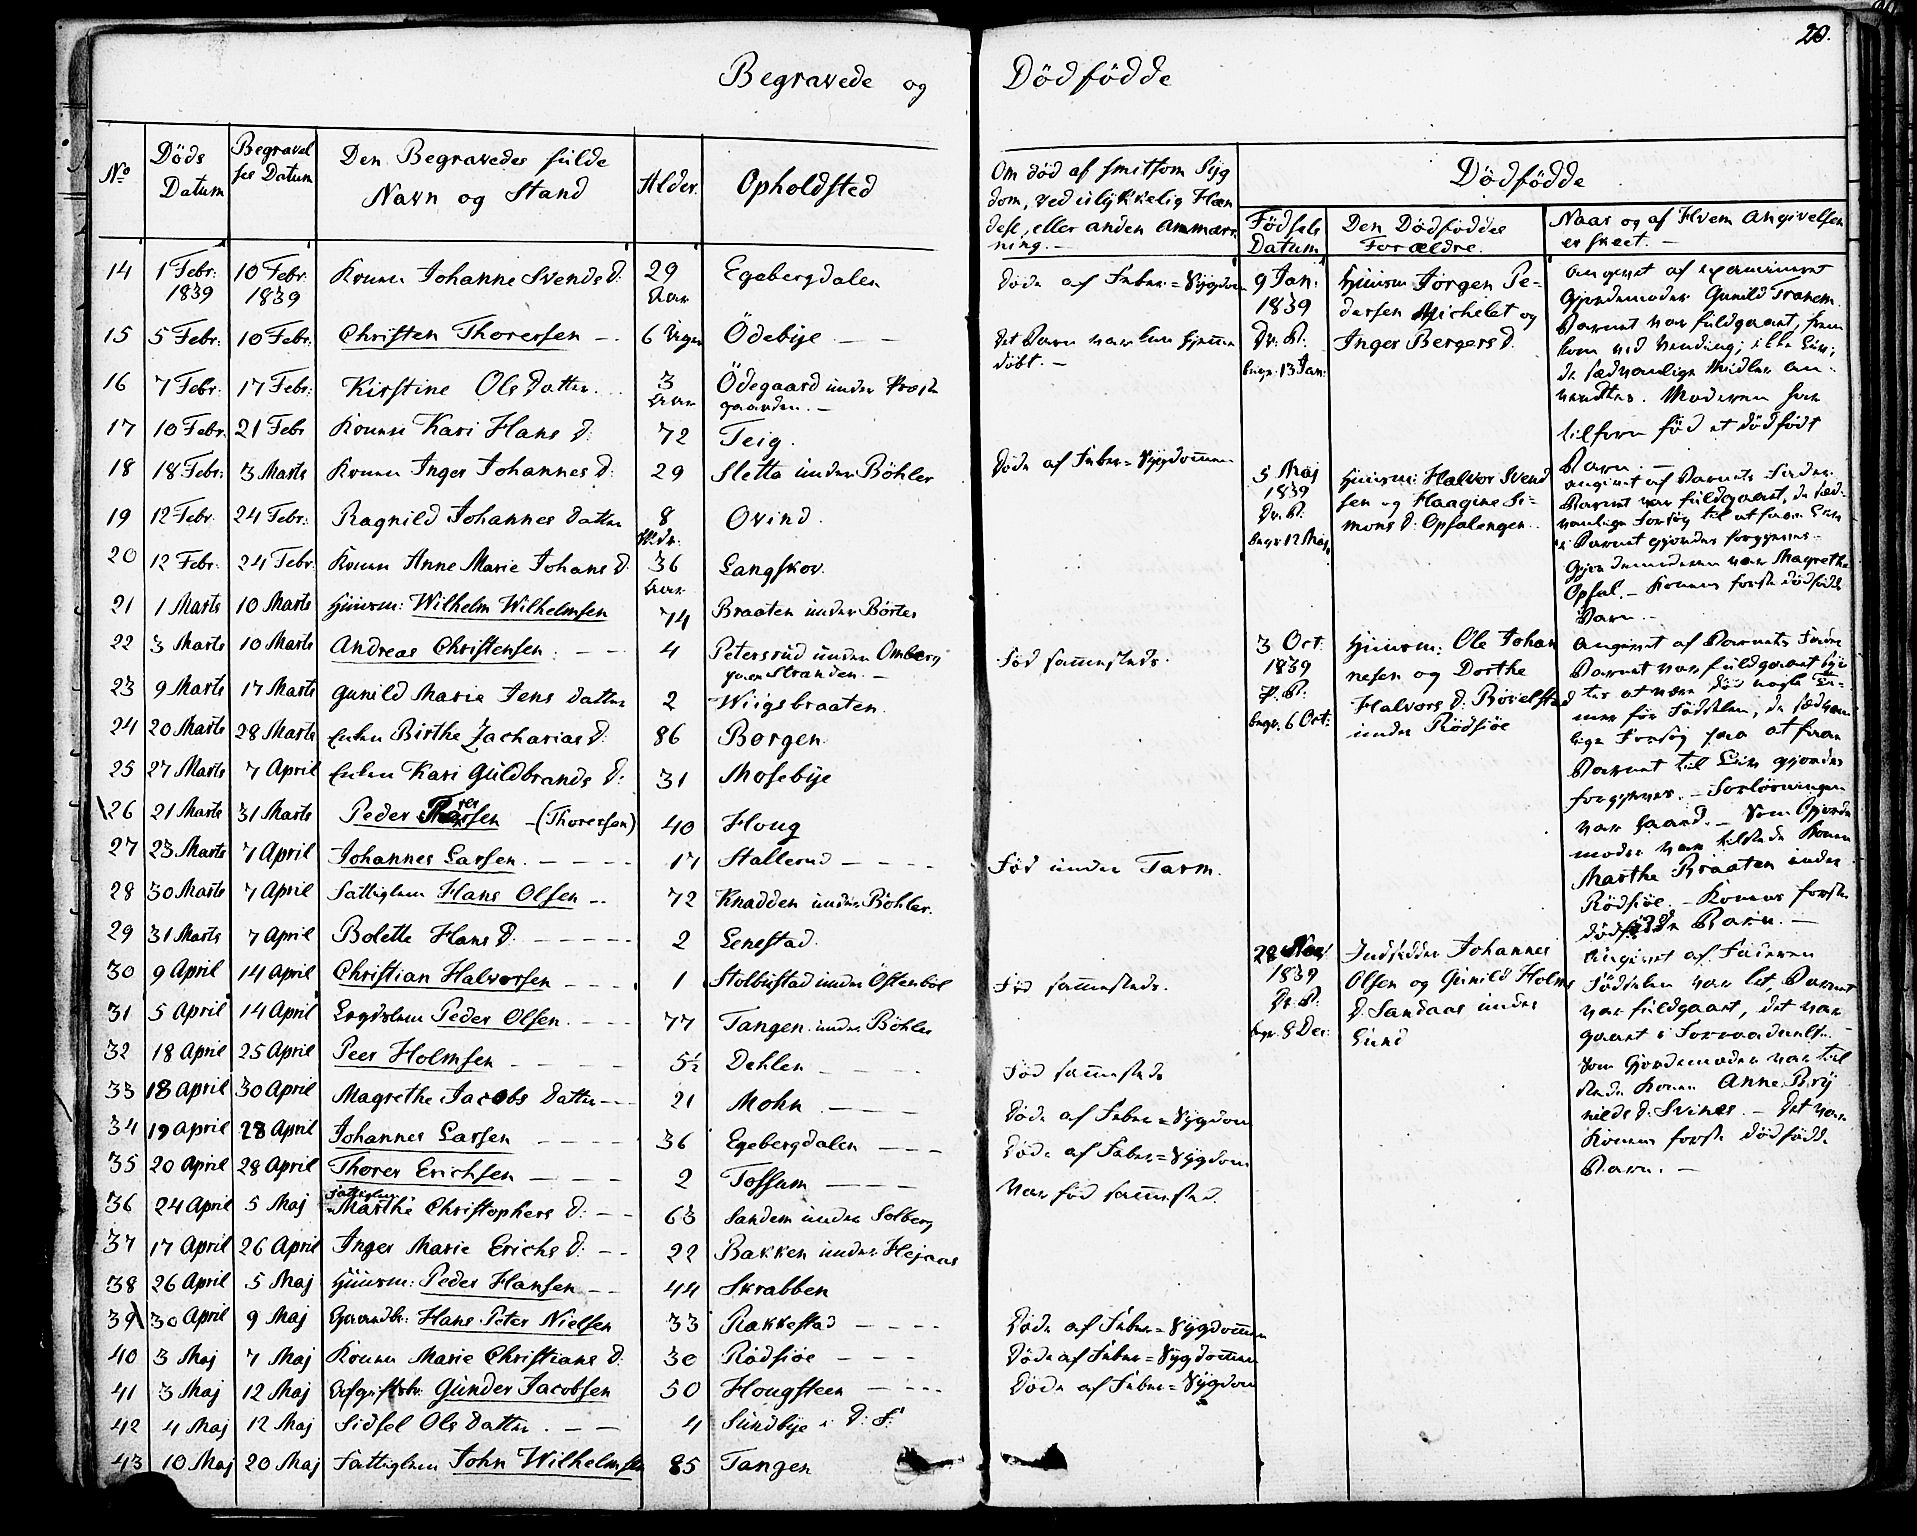 20.
Begravede og Dödfödde
No Döds Datum Begravelses Datum Den Begravedes fulde Navn og Stand Alder. Opholdsted
Om död af smitsom Syg
dom, ved ulykkelig Hæn
delse, eller anden Anmærk
ning. —
Dödfödde
Födsels Datum Den Dödföddes Forældre. Naar og af Hvem Angivelsen er skeet. —
14 1 Febr: 1839 10 Febr: 1839 Konen Johanne Svends d: 29 Aar Egebergdalen Döde af Feber=Sygdom
15 5 Febr: 10 Febr: Christen Thoressen —. 6 Uger Ödebÿe — — Det Barn var kun hjemme döbt. —
16 7 Febr: 17 Febr: Kirstine Ols Datter... 3 Aar Ödegaard under Præste gaarden. —
17 10 Febr. 21 Febr Konen Kari Hans d: 72 Teig.
18 18 Febr: 3 Marts Konen Inger Johannes d: 29 Sletta under Böhler Döde af Feber=Sygdommen
19 12 Febr. 24 Febr: Ragnild Johannes datter 8 Mdr. Ovind.
20 12 Febr. 24 Febr. Konen Anne Marie Johans d. 36 Aar Langskov.
21 1 Marts 10 Marts Huusm: Wilhelm Wilhelmsen 74 Braaten under Börter
22 3 Marts 10 Marts Andreas Christensen. — — 4 Petersrud under Omberg paa Stranden. — Föd sammesteds.
23 9 Marts 17 Marts Gunild Marie Jens datter 2 Wiigsbraaten.
24 20 Marts 28 Marts Enken Birthe Zacharias d: 86 Borgen
25 27 Marts 7 April Enken Kari Guldbrands d: 31 Mosebÿe
26 21 Marts 31 Marts Peder —(Thoressen) 40 Houg
27 23 Marts 7 April Johannes Larsen. — — — 17 Stallerud — — — Föd under Tarm.
28 30 Marts 7 April Fattiglem Hans Olsen — 72 Knadden under Böhler.
29 31 Marts 7 April Bolette Hans d. — — — — 2 Lenestad.
30 9 April 14 April Christian Halvorsen — — — 1 Stolbustad under Östenböl Föd sammesteds.
31 5 April 14 April Logslem Peder Olsen. — — 77 Tangen under Böhler
32 18 April 25 April Peer Holmsen — — — 5½ Dehlen — — — Föd sammesteds
33 18 April 30 April Magrethe Jacobs datter — — 21 Mohn — — — Döde af Feber=Sygdom
34 19 April 28 April Johannes Larsen — — — 36 Egebergdalen — — — Döde af Feber=Sygdom
35 20 April 28 April Thorer Erichsen — — — 2 Tossum — — — Var föd sammested.
36 24 April 5 Maj Fattiglem Marthe Christophers d: — — 63 Sandem under Solberg
37 17 April 26 April Inger Marie Erichs d: — — 22 Bakken under Hejaas
38 26 April 5 Maj Huusm: Peder Hansen — — 44 Skrabben
39 30 April 9 Maj Gaardbr: Hans Peter Nielsen 33 Rakkestad — — — Döde af Feber=Sygdommen
40 3 Maj 7 Maj Konen Marie Christians d: 30 Rödsiöe — — — Döde af Feber=Sygdommen
41 3 Maj 12 Maj Gunder Jacobsen 50 Hougsteen — — — Döde af Feber=Sygdom
42 4 Maj 12 Maj Sidsel Ols datter. — — 4 Sundbÿe i D: S:
43 10 Maj 20 Maj Fattiglem John Wilhelmsen 85 Tangen
9 Jan: 1839 Dr. B. begr. 13 Jan:
Huusm Jörgen Pe-
dersen Michelet og
Inger Bergers d.
Angivet af examineret
Gjordemoder Gunild Tranem.
Barnet var fuldgaaet, frem
kom ved Vending; ikke Liv;
de sædvanlige Midler an-
vendtes. Moderen har
tilforn fød et dödfödt
Barn. —
5 Maj 1839 Dr. B. begr. 12 Maj
Huusm: Halvor Svend
sen og Haagine Si-
mons d: Opsalengen.
Angivet af Barnets Fader.
Barnet var fuldgaaet, de sæd-
vanlige Forsög til at faae Liv
i Barnet gjordes forgjeves.
Gjordemoderen var Magrethe
Opsal. — Konens förste dödfödde
Barn.
3 Oct. 1839 P. B. begr. 6 Oct:
Huusm: Ole Johan
nesen og Dorthe
Halvors d: Bövelstad
under Rödsiöe
Angivet af Barnets Fader
Barnet var fuldgaaet
at være död nogle Ti-
mer för Födselen, de sædvan
lige Forsög paa at faae
Barnet til Liv gjordes
forgjeves. — Forlösningen
var haard. — Som Gjorde
moder var tilstede Konen
Marthe Braaten under
Rödsiöe. — Konens förste
dödfödde Barn. —
28 Nov: 1839 Dr. B. begr. 8 Dec:
Indsidder Johannes
Olsen og Gunild Holms
d. Sandaas under
Lund
Angivet af Faderen
Födselen var let, Barnet
var fuldgaaet, det var
gaaet i Forraadnelse
Som Gjordemoder var til
stede Konen Anne Brÿ
nilds d: Svines. — Det var
Konens förste dödfödde
Barn. —